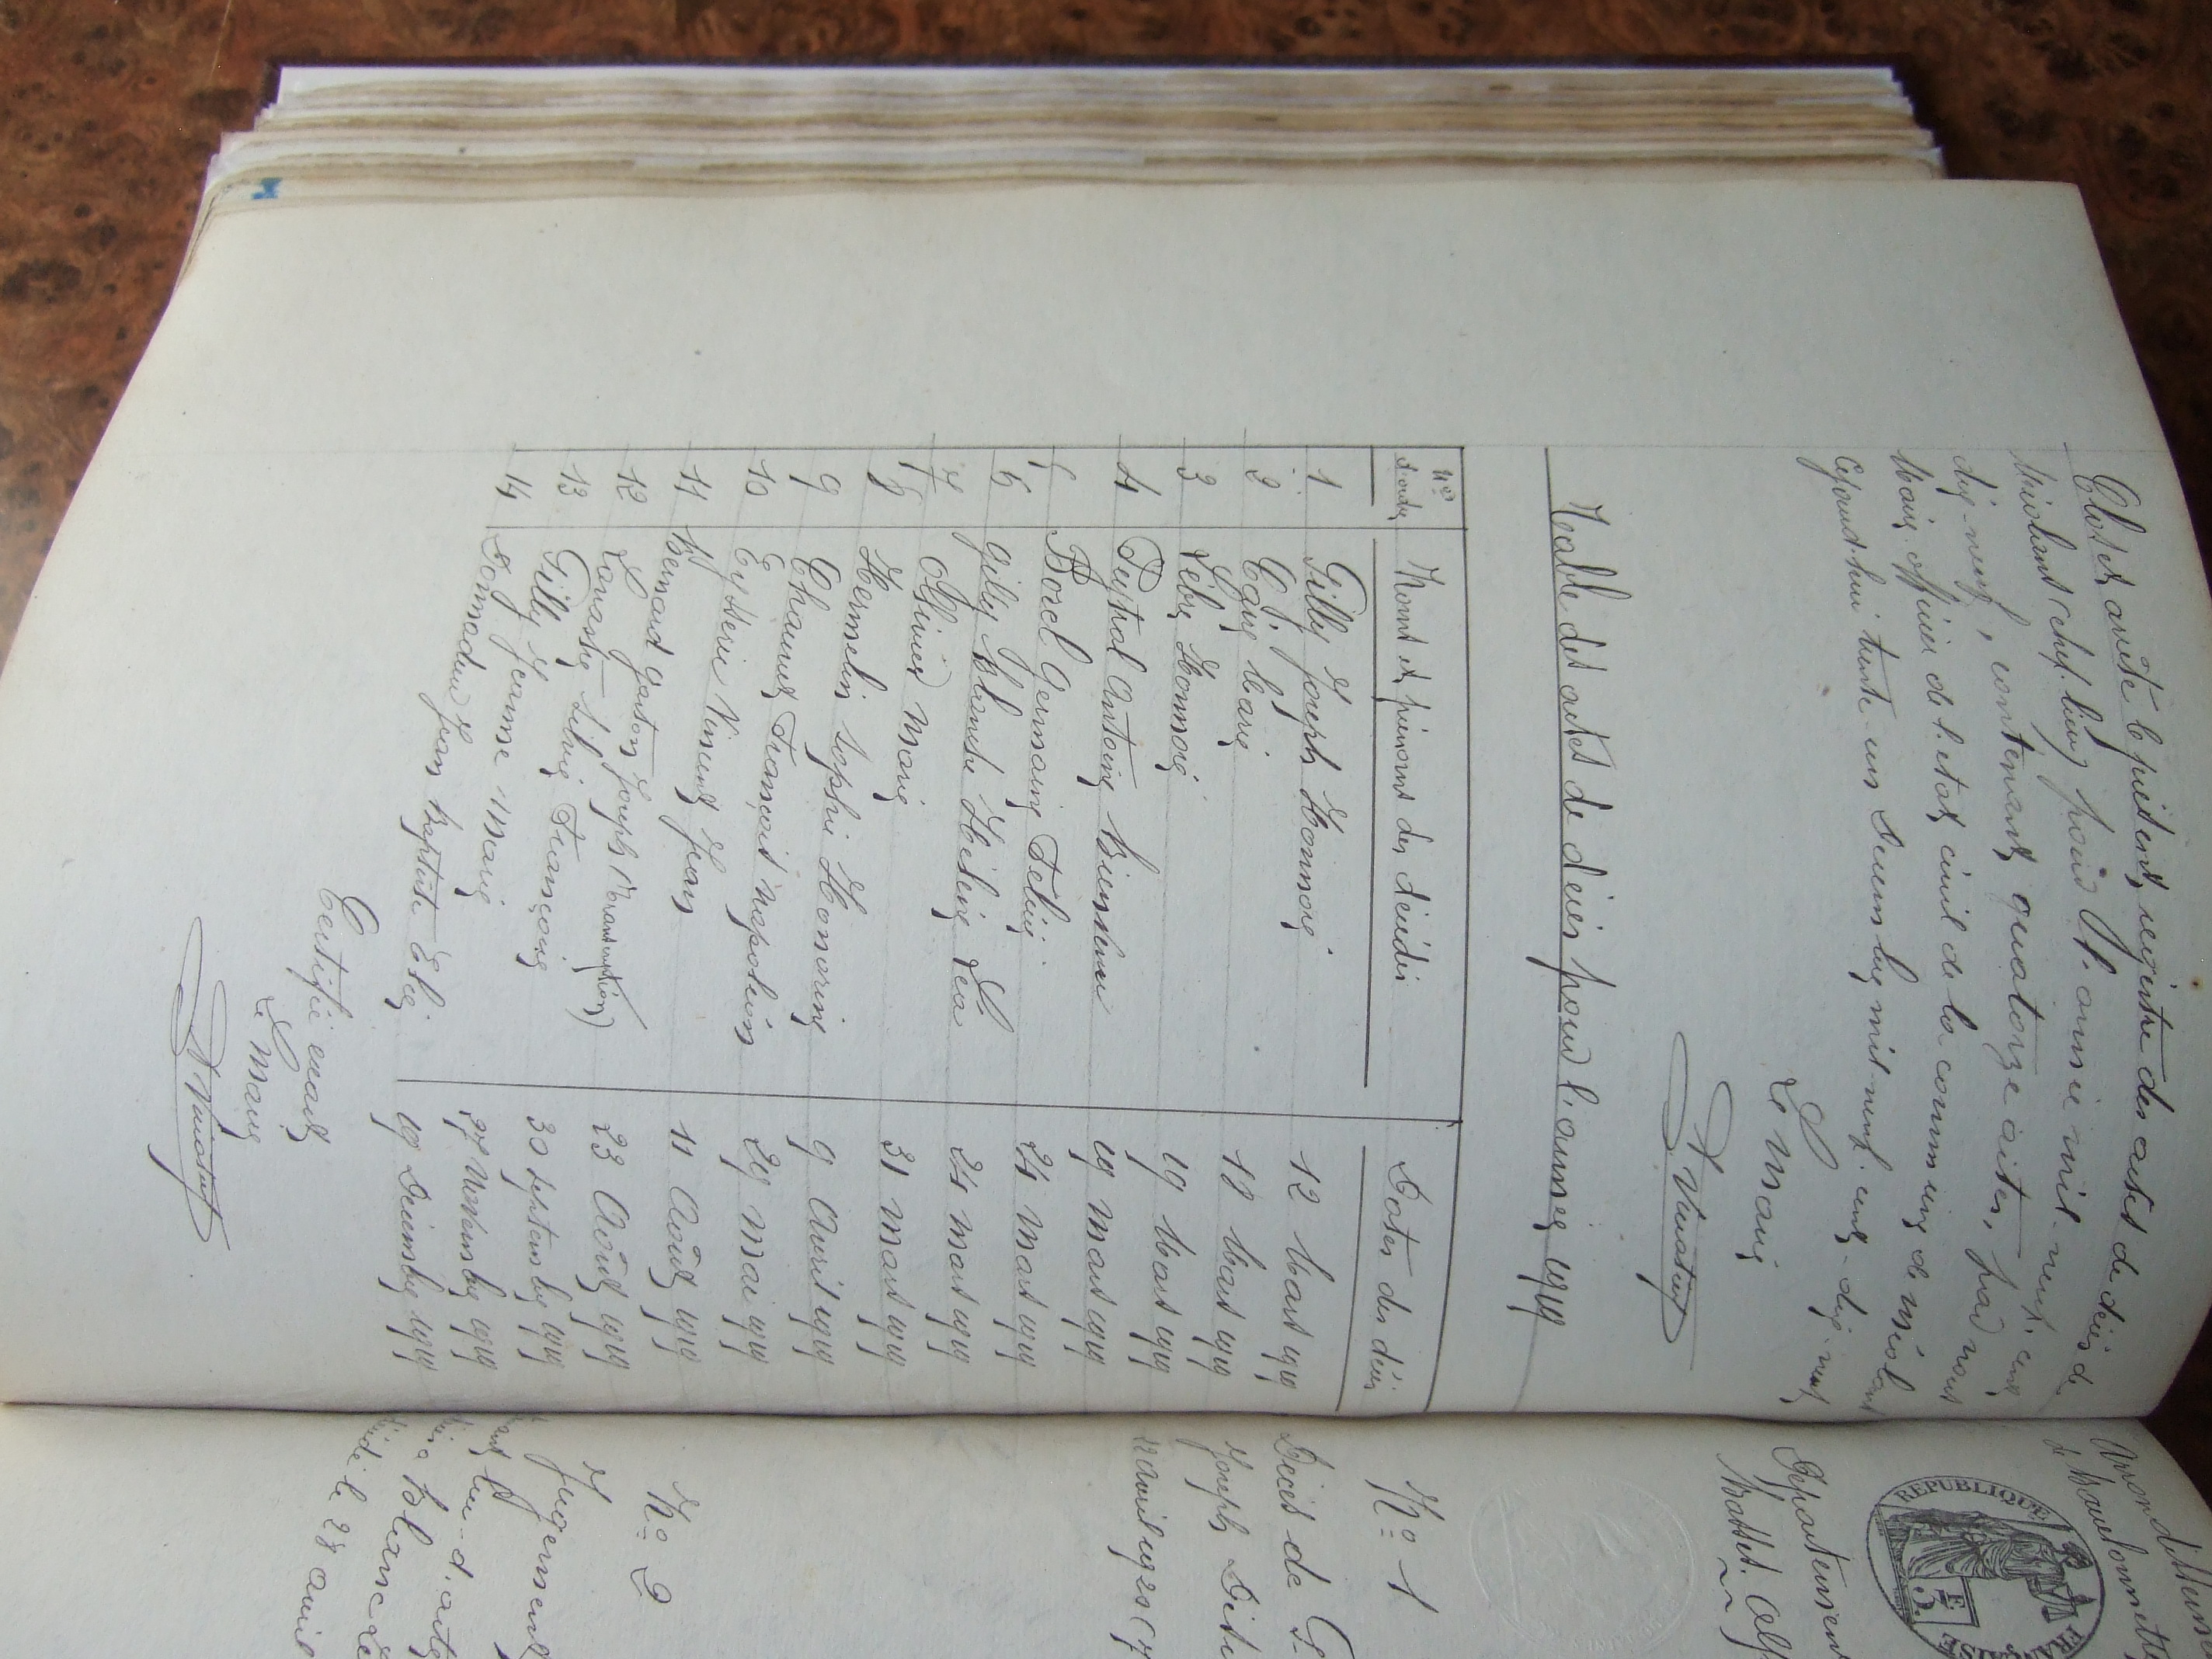 Clos et arrêté le présent registre des actes de décès de
Méolans chef-lieu pour l'année mil-neuf-cent
dix-neuf, contenant quatorze actes, par nous
Maire, officier de l'état civil de la commune de Méolans
Cejourd'hui trente un Décembre mil-neuf-cent-dix-neuf
Le Maire
Table des actes de décès pour l'année 1919
Nos d'ordre
Noms et prénoms des décédés
Dates des décès
1 Gilly Joseph Honnoré 12 Mars 1919
2 Caire Marie 18 Mars 1919
3 Honnoré 19 Mars 1919
4 Peytral Antoine Bienvenu 19 Mars 1919
Borel Germaine Félicie 24 Mars 1919
6 Gilly Blanche Hélène Léa 24 Mars 1919
7 Ollivier Marie 31 Mars 1919
8 Hermelin Sophie Honorine 9 Avril 1919
9 Chauvet François Napoléon 29 Mai 1919
10 Eyssérie Vincent Jean 11 Août 1919
11 Bernard Gaston Joseph (Transcription) 23 Août 1919
12 Silvie Françoise 30 Septembre 1919
13 Gilly Jeanne Marie 27 Novembre 1919
14 Donnadieu Jean Baptiste Elie 19 Décembre 1919
Certifié exact
Le Maire
Département
REPUBLIQUE FRANÇAISE
No 1
Décès de G
Joseph
12 avril 1920 (7
No 2
Jugement
d'acte
Blanc
le 28 avril